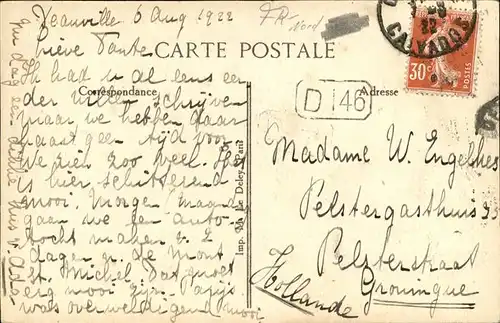 Deauville 6 Aug 1922
FR
Nord
CALVADOS
CARTE POSTALE
30c
POSTES
Correspondance
Adresse
D 146
Lieve Tante
Ik had u al eens eer
der willen schrijven
maar we hebben daar
haast geen tijd voor
we zien zoo veel. Het
is hier schitterend
mooi. Morgen
gaan we den auto-
tocht maken v. 2
dagen o. de Mont
St. Michel Dat moet
erg mooi zijn. Parijs
was overweldigend mooi
Imp. Le Deley, Paris
Madame W. Engelkes
Pelstergasthuis
Pelsterstraat
Groningue
Hollande